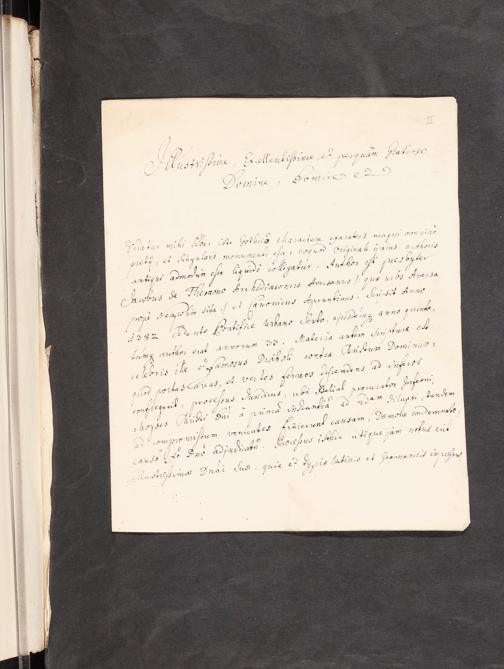 II
Illustrissime, Excellentissime, et perquam Gratiose
Domine, Domine
Videtur mihi liber iste Gothico charactere exaratus magni omnino
pretij, et singularis monumenti esse; eoquod originale ipsius authoris
antiqui admodum esse liquido colligatur. Author est presbyter
Jacobus de Theramo Archidiaconus Aversanus /: quae urbs Aversa
prope Neapolim sita :/ et Canonicus Aprutinus. Scripsit Anno
1382 Sedente Pontifice Urbano Sexto, ejusdemq anno quinto,
author erat annorum 33. Materia autem scripturae est
celebris ille et famosus Diaboli contra Christum Dominum,
quod portas aereas, et vectes ferreos descendens ad inferos
confregerit, processus Juridicus, ubi Belial procurator Inferni,
Moyses Christi Dni à prima instantia ad dilapsi, tandem
ad compromissum venientes finierunt causam, Daemone condemnato,
causa Xto Dno adjudicata. Processus istic utique jam notus erit
Illustrissimae Dnaoi Suae, quia et typis latinis et Germanicis impressus